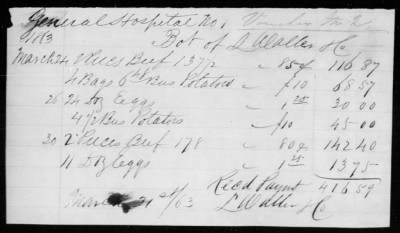 General Hospital No 1 Voucher No 2
1863 Bot of L Walter & Co
March 24 2 Pieces Beef 137 1/2 " 85¢ 116 87
4 Bags Bus Potatoes " $10 68 57
26 24 Dz Eggs " 1 25 30 00
4 1/2 Bus Potatoes " $10 45 00
30 2 Pieces Beef 178 " 80¢ 142 40
11 Dz Eggs " 1 25 13 75
Recd Paymt 416 59
March 31st /63 L Walter & Co